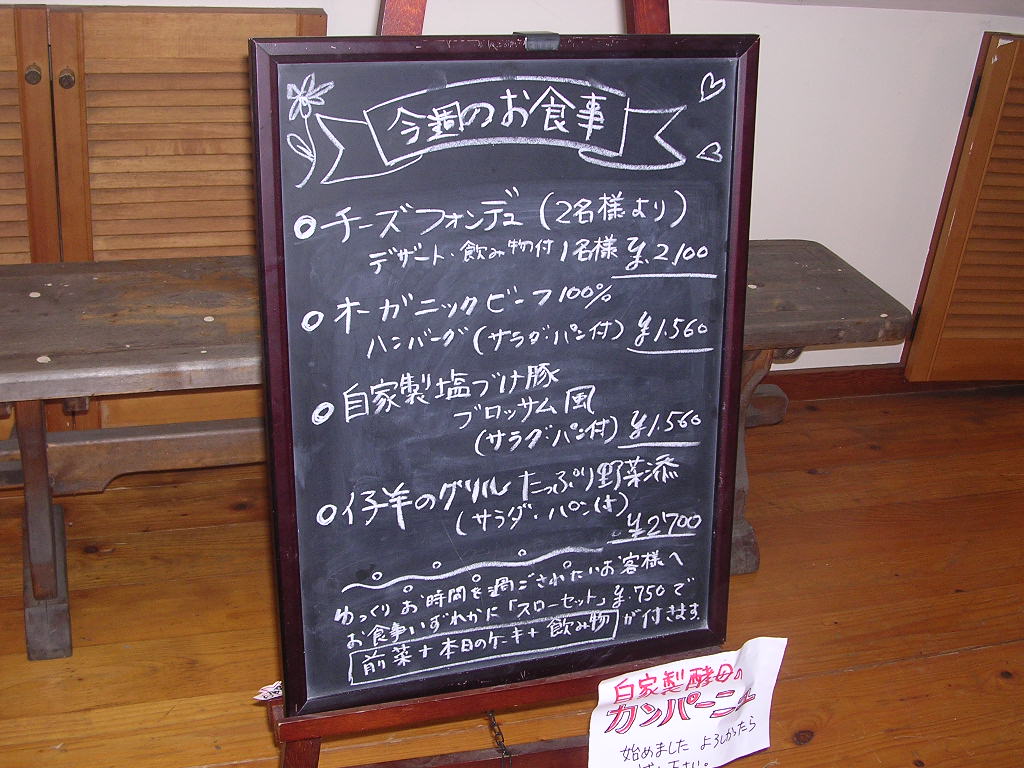 今週のお食事
チーズフォンデュ（2名様より）
デザート・飲み物付 1名様 ¥.2,100
オーガニックビーフ100%
ハンバーグ（サラダ・パン付）¥1.560
自家製塩づけ豚
ブロッサム風
（サラダ・パン付）¥1.560
仔羊のグリル たっぷり野菜添
（サラダ・パン付）
¥2700
ゆっくりお時間を過ごされたいお客様へ
お食事いずれかに「スローセット」¥.750で
前菜+本日のケーキ+飲み物が付きます。
自家製酵母の
カンパーニュ
始めました よろしかったら